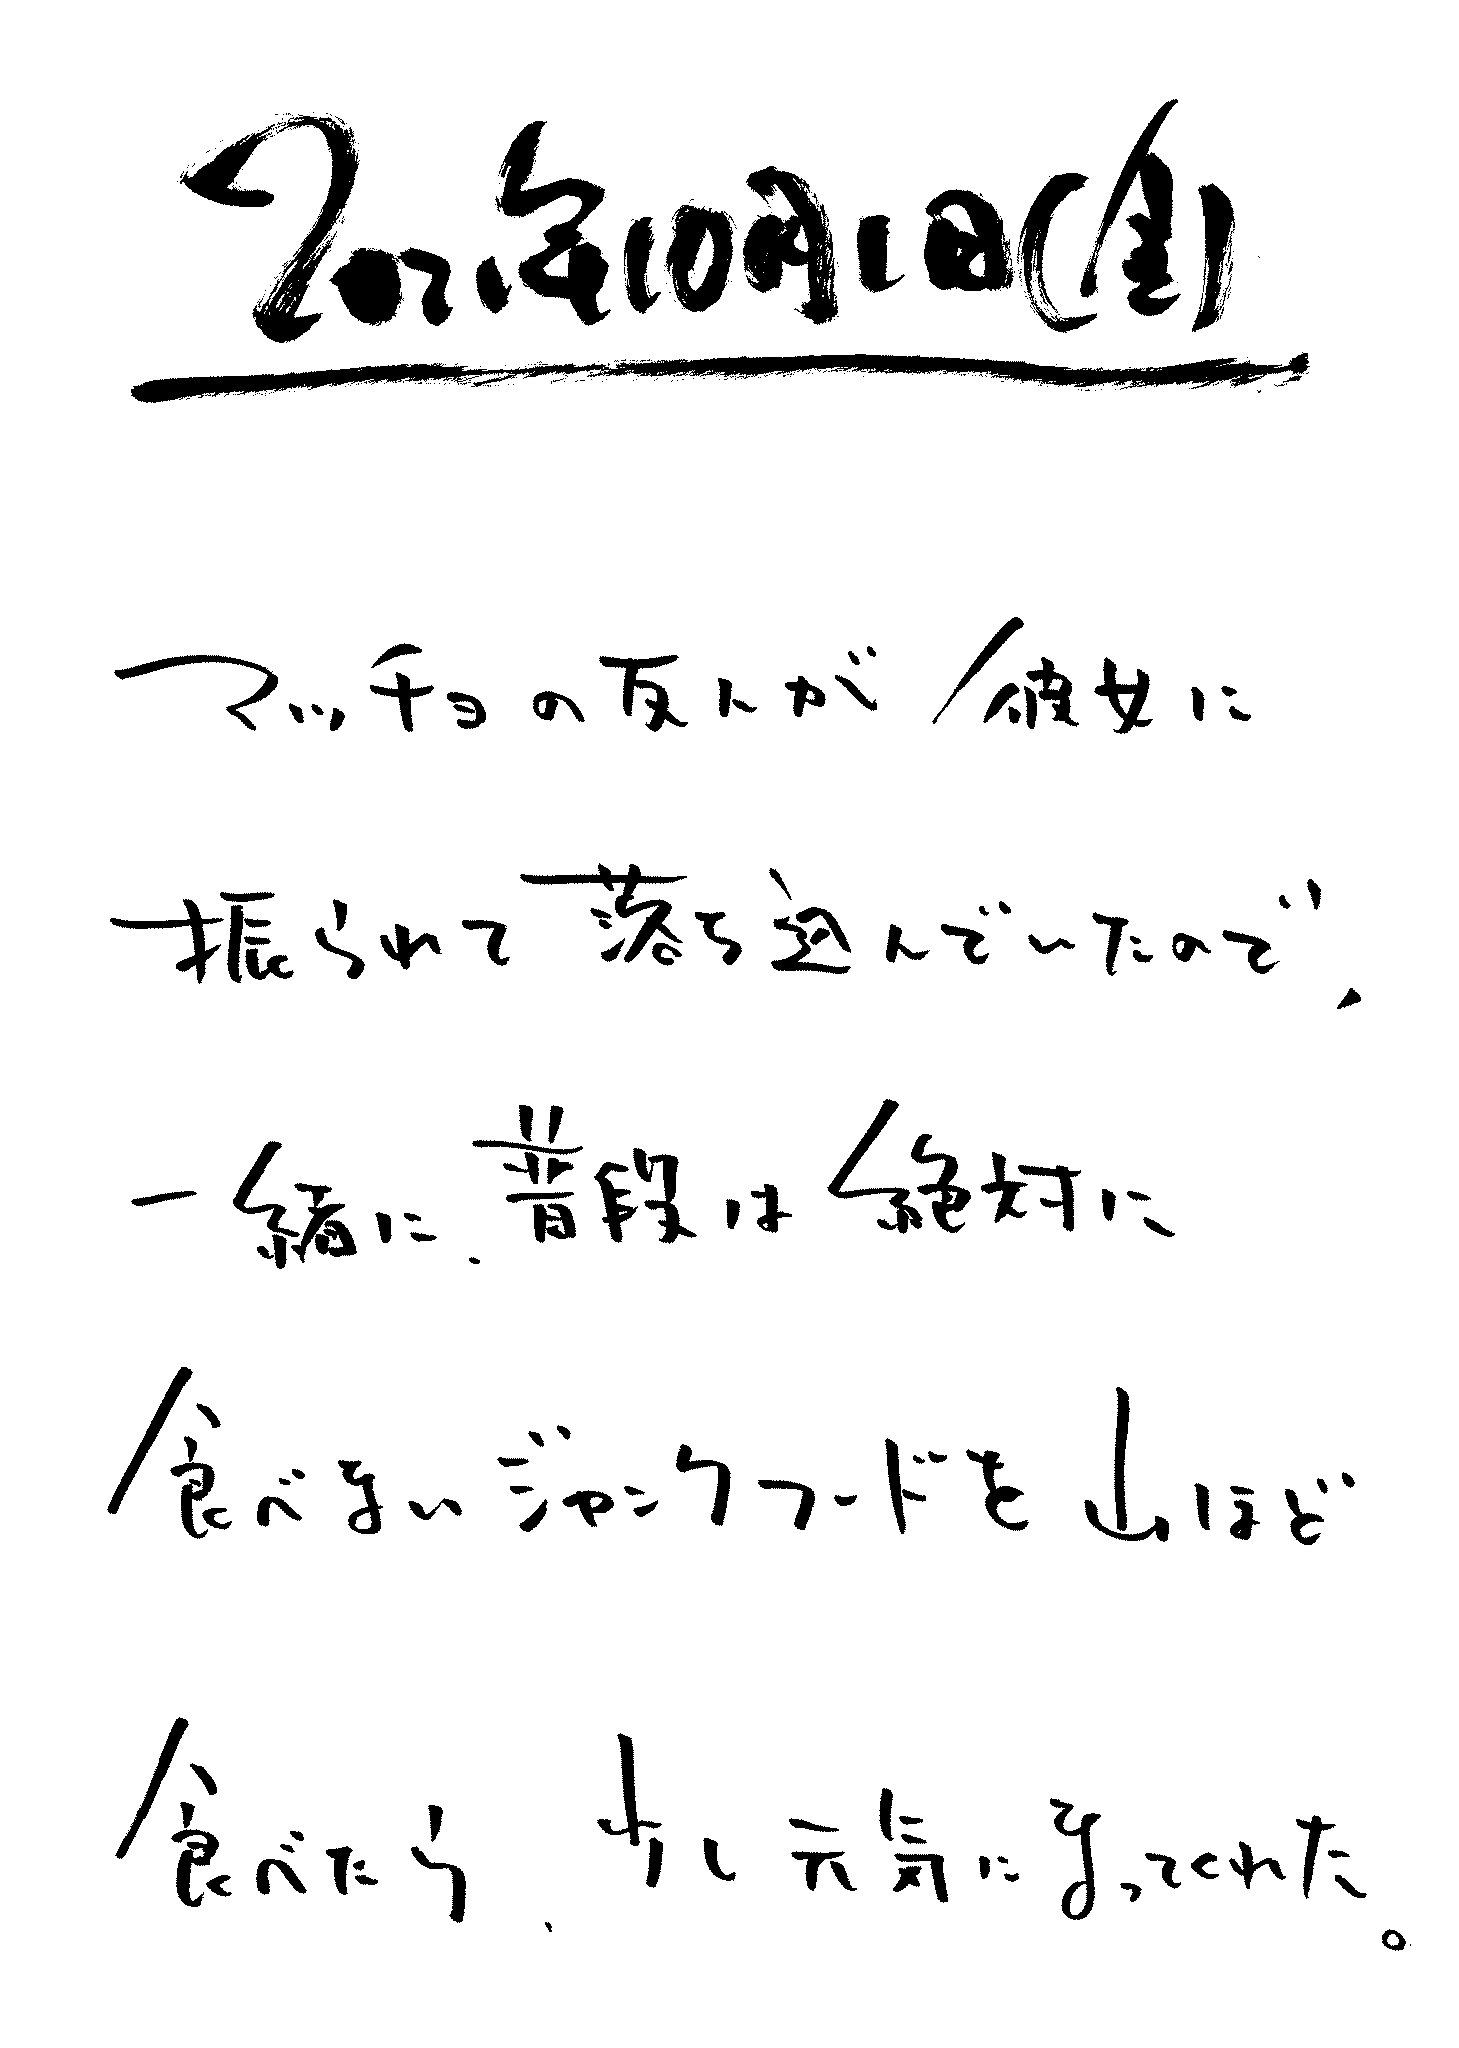 2021年10月1日(金)
マッチョの友人が彼女に
振られて落ち込んでいたので、
一緒に、普段は絶対に
食べないジャンクフードを山ほど
食べたら、少し元気になってくれた。